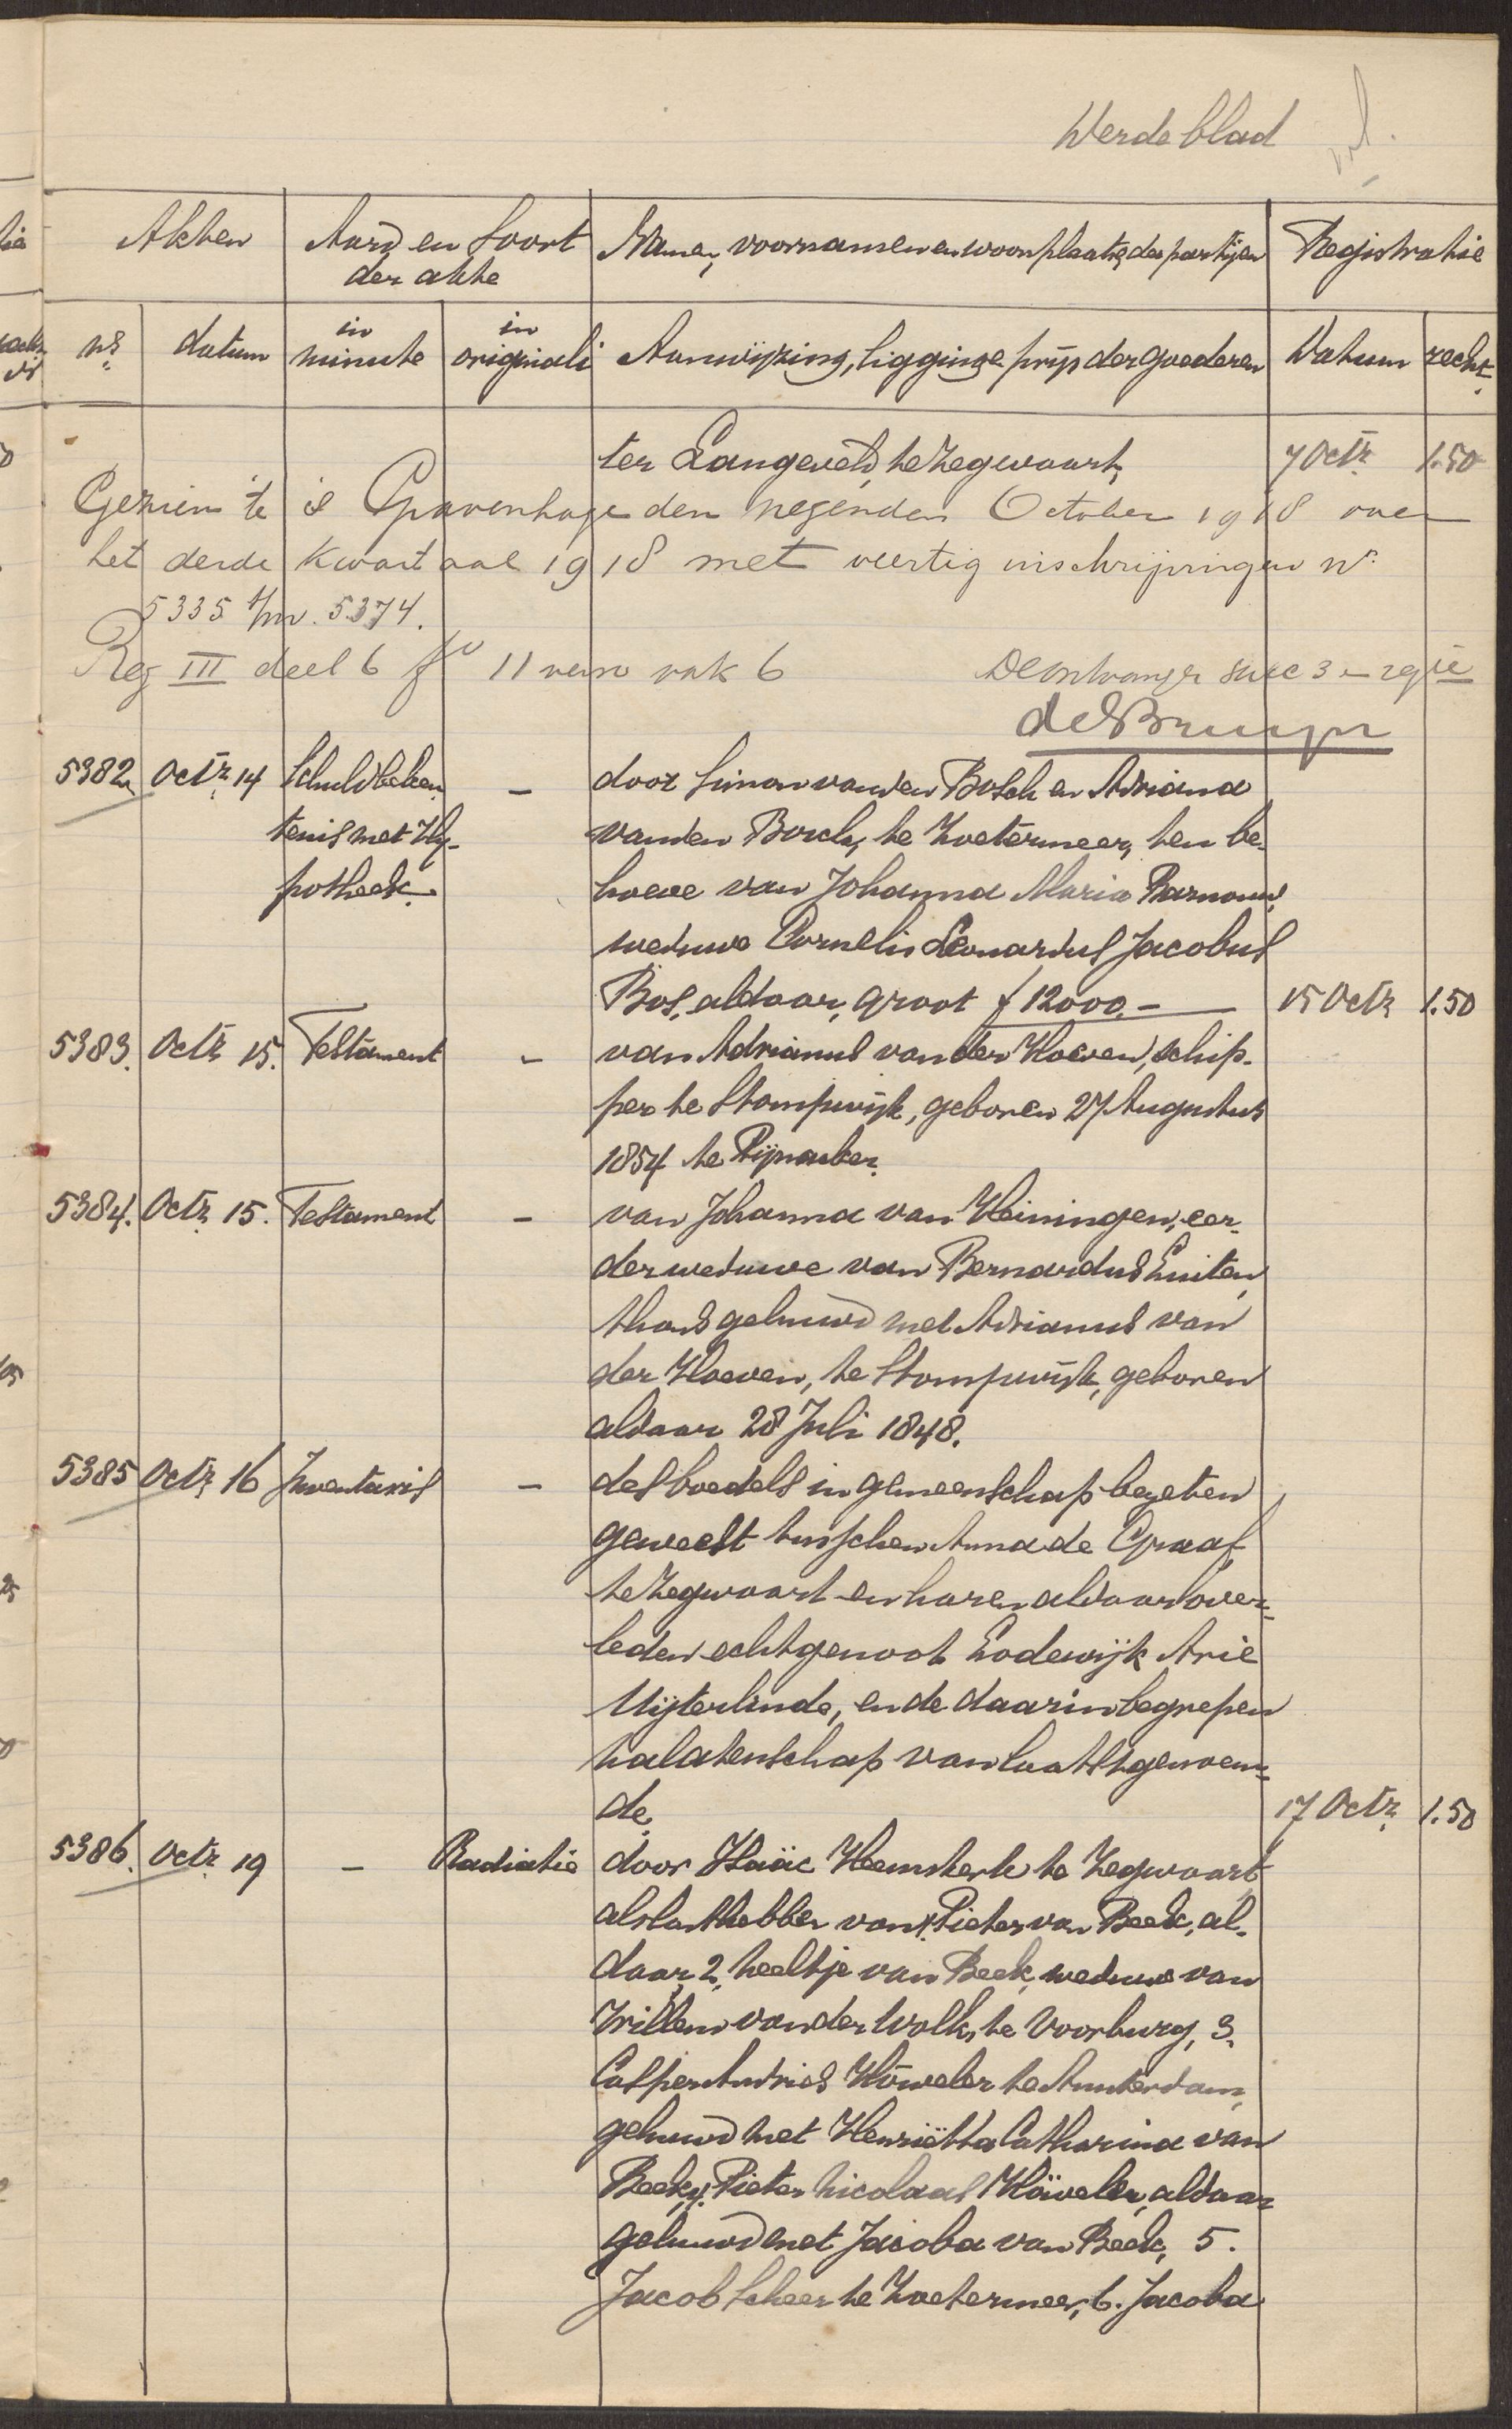 Derde blad
Akten Aard en Soort der akte Namen, voornamen en woonplaats der partijen Registratie
No datum in minute in originali Aanwijzing, ligging e prijs der goederen Datum recht.
ter Langeveld, te Zegwaart, 7 Octr. 1.50
Gezien te 's Gravenhage den negenden October 1918 over
het derde kwartaal 1918 met veertig inschrijvingen No.
5335 t/m. 5374.
Reg III deel 6 fo 11 verso vak 6 De Ontvanger succ 3e regie
de Bruyn
5382 Octr. 14 Schuldbeken- — door Simon van den Bosch en Adriana
tenis met Hy- van den Bosch, te Zoetermeer, ten be-
potheek. hoeve van Johanna Maria Barnouw,
weduwe Cornelis Leonardus Jacobus
Bos, aldaar, groot f 12000.— 15 Octr 1.50
5383. Octr. 15. Testament — van Adrianus van der Hoeven, schip-
per te Stompwijk, geboren 27 Augustus
1854 te Pijnacker.
5384. Octr. 15. Testament — van Johanna van Heiningen, eer-
der weduwe van Bernardus Luiten,
thans gehuwd met Adrianus van
der Hoeven, te Stompwijk, geboren
aldaar 28 Juli 1848.
5385 Octr. 16 Inventaris — des boedels in gemeenschap bezeten
geweest tusschen Anna de Graaf
te Zegwaart en haren aldaar over-
leden echtgenoot Lodewijk Arie
Uijterlinde, en de daarin begrepen
nalatenschap van laatstgenoem-
de. 17 Octr. 1.50
5386. Octr. 19 — Radiatie door Isaäc Heemskerk te Zegwaart
als lasthebber van 1. Pieter van Beek, al-
daar, 2. Neeltje van Beek, weduwe van
Willem van der Valk, te Voorburg, 3.
Casper Andries Höweler te Amsterdam,
gehuwd met Henriëtta Catharina van
Beek, 4. Pieter Nicolaas Höweler, aldaar
gehuwd met Jacoba van Beek, 5.
Jacob Scheer te Zoetermeer, 6. Jacoba